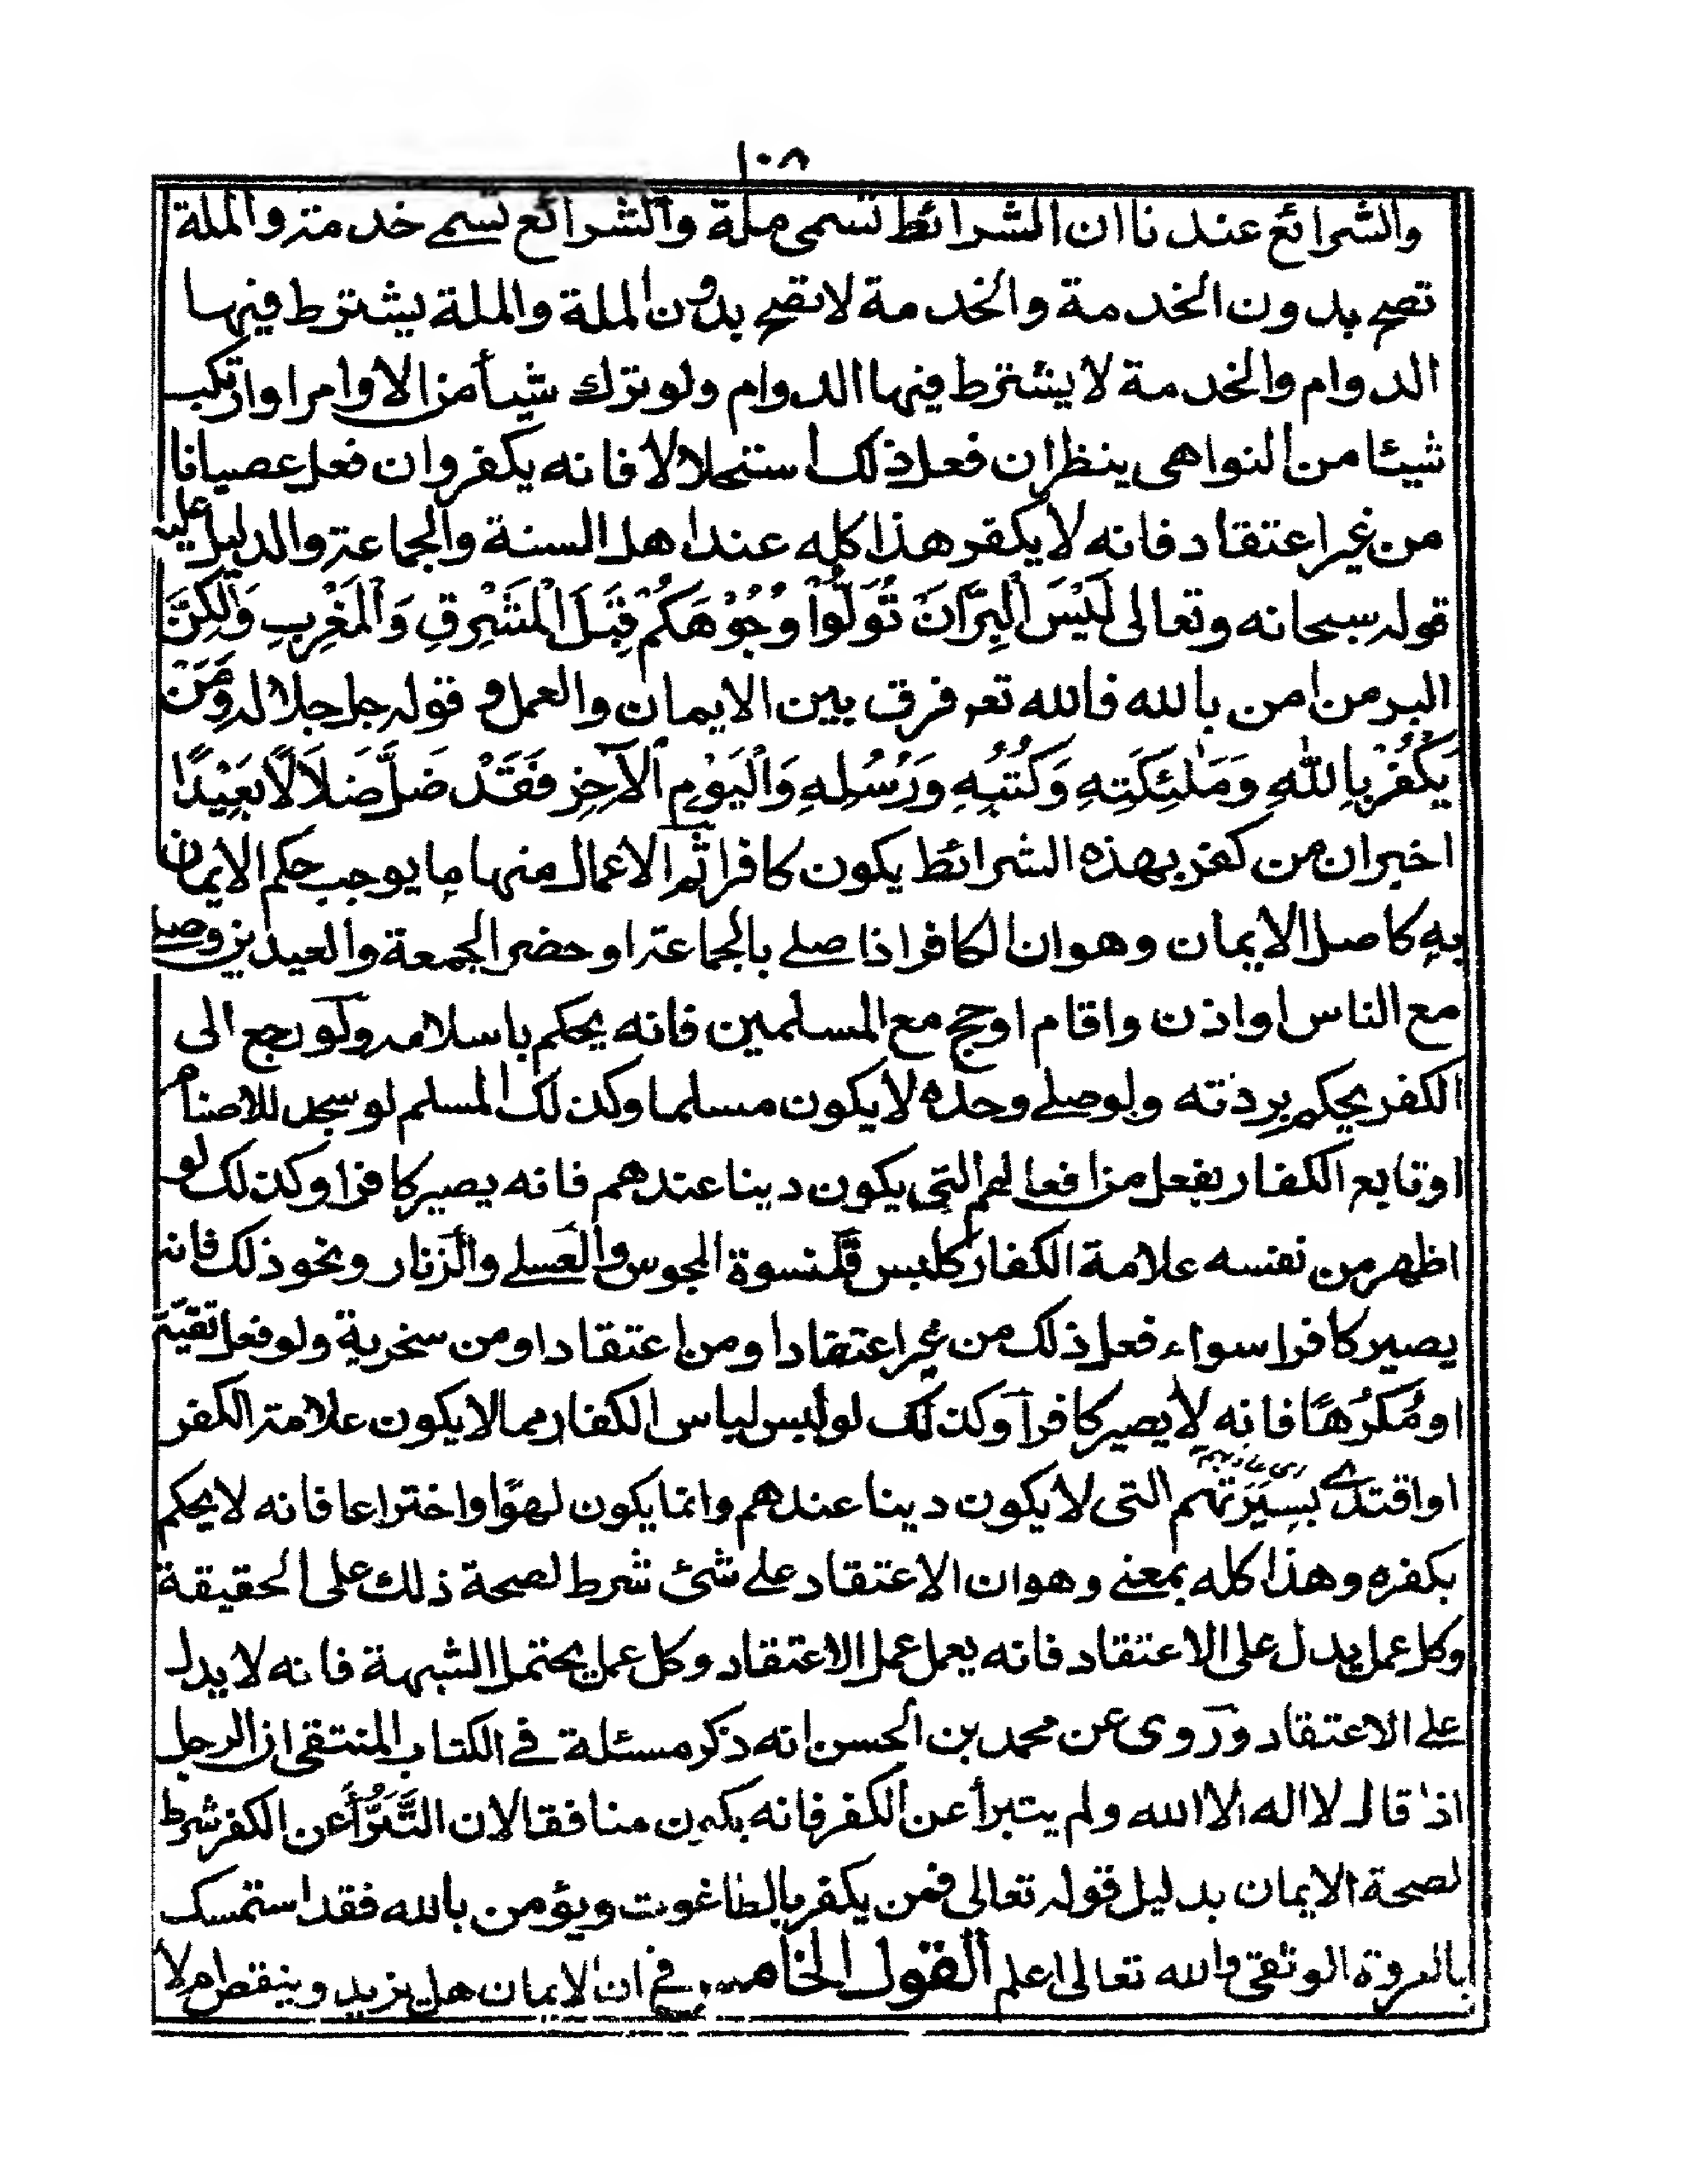 ١٠٨
والشرائع عندنا ان الشرائط تسمى ملة والشرائع تسمى خدمة والملة
تصح بدون الخدمة والخدمة لا تصح بدون الملة والملة يشترط فيها
الدوام والخدمة لا يشترط فيها الدوام ولو ترك شيأ من الاوامر او ارتكب
شيئا من النواهى ينظر ان فعل ذلك استحلالا فانه يكفر وان فعل عصيانا
من غير اعتقاد فانه لا يكفر هذا كله عند اهل السنة والجماعة والدليل عليه
قوله سبحانه وتعالى لَيْسَ الْبِرَّ اَنْ تُوَلُّوْا وُجُوْهَكُمْ قِبَلَ الْمَشْرِقِ وَالْمَغْرِبِ وَلٰكِنَّ
البر من امن بالله فالله تعـ فرق بين الايمان والعمل و قوله جل جلاله وَمَنْ
يَكْفُرْ بِاللهِ وَمَلٰئِكَتِهِ وَكُتُبِهِ وَرُسُلِهِ وَالْيَوْمِ الْآخِرِ فَقَدْ ضَلَّ ضَلَالًا بَعِيْدًا
اخبر ان من كفر بهذه الشرائط يكون كافرا ثم الاعمال منها ما يوجب حكم الايمان
به كاصل الايمان وهو ان الكافر اذا صلى بالجماعة او حضر الجمعة والعيدين وصلى
مع الناس او اذن واقام او حج مع المسلمين فانه يحكم باسلامه ولو رجع الى
الكفر يحكم بردته ولو صلى وحده لا يكون مسلما وكذلك المسلم لو سجد للاصنام
او تابع الكفار بفعل من افعالهم التى يكون دينا عندهم فانه يصير كافرا وكذلك لو
اظهر من نفسه علامة الكفار كلبس قلنسوة المجوس والعسلى والزنار ونحو ذلك فانه
يصير كافرا سواء فعل ذلك من غير اعتقاد او من اعتقاد او من سخرية ولو فعل تقية
او مُكْرَهًا فانه لا يصير كافرا وكذلك لو لبس لباس الكفار مما لا يكون علامة الكفر
او اقتدى بسِيَرَتهم التى لا يكون دينا عندهم وانما يكون لهوًا واختراعا فانه لا يحكم
بكفره وهذا كله بمعنى وهو ان الاعتقاد على شئ شرط لصحة ذلك على الحقيقة
وكل عمل يدل على الاعتقاد فانه يعمل عمل الاعتقاد وكل عمل يحتمل الشبهة فانه لا يدل
على الاعتقاد وروى عن محمد بن الحسن انه ذكر مسئلة فى الكتاب المنتقى ان الرجل
اذا قال لا اله الا الله ولم يتبرأ عن الكفر فانه يكون منافقا لان التَّبَرُّأَ عن الكفر شرط
لصحة الايمان بدليل قوله تعالى فمن يكفر بالطاغوت ويؤمن بالله فقد استمسك
بالعروة الوثقى والله تعالى اعلم القول الخامس فى ان الايمان هل يزيد وينقص ام لا